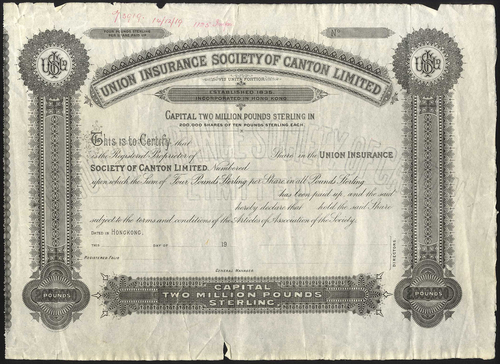 FOUR POUNDS STERLING
Nº
UNION INSURANCE SOCIETY OF CANTON LIMITED
ESTABLISHED 1835.
INCORPORATED IN HONG KONG.
CAPITAL TWO MILLION POUNDS STERLING IN
200,000 SHARES OF TEN POUNDS STERLING EACH.
This is to Certify that
is the Registered Proprietor of Shares in the UNION INSURANCE
SOCIETY OF CANTON LIMITED. Numbered
upon which the Sum of Four Pounds Sterling per Share, in all Pounds Sterling
has been paid up, and the said
hereby declare that hold the said Share
subject to the terms and conditions of the Articles of Association of the Society.
DATED IN HONGKONG,
THIS DAY OF 19
REGISTERED FOLIO
GENERAL MANAGER
DIRECTORS
CAPITAL
TWO MILLION POUNDS
STERLING
POUNDS
POUNDS